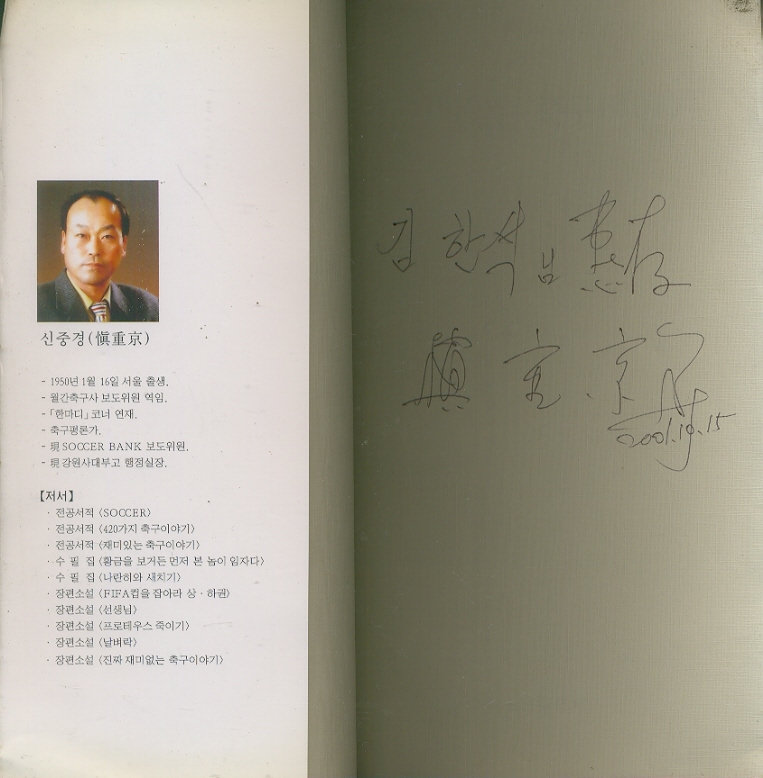 신중경(愼重京)
- 1950년 1월 16일 서울 출생.
- 월간축구사 보도위원 역임.
- 「한마디」코너 연재.
- 축구평론가.
- 現 SOCCER BANK 보도위원.
- 現 강원사대부고 행정실장.
【저서】
· 전공서적 〈SOCCER〉
· 전공서적 〈420가지 축구이야기〉
· 전공서적 〈재미있는 축구이야기〉
· 수 필 집 〈황금을 보거든 먼저 본 놈이 임자다〉
· 수 필 집 〈나란히와 새치기〉
· 장편소설 〈FIFA컵을 잡아라 상 · 하권〉
· 장편소설 〈선생님〉
· 장편소설 〈프로테우스 죽이기〉
· 장편소설 〈날벼락〉
· 장편소설 〈진짜 재미없는 축구이야기〉
김한석님 惠存
愼重京
2001.10.15